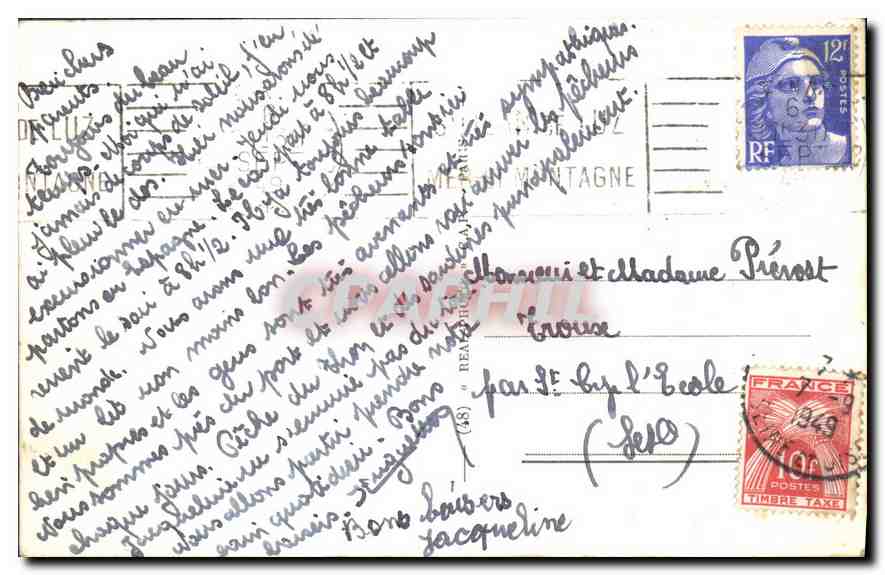 Bien chers
parents
Toujours du beau
temps. Moi que n'ai
jamais le coup de soleil, j'en
ai plein le dos. Hier nous avons été
excursionner en mer, jeudi nous
partons en Espagne. Le car part à 8h 1/2 et
revient le soir à 8h 1/2. Il y a toujours beaucoup
de monde. Nous avons une très bonne table
et un lit non moins bon. Les pêcheurs sont ici
bien propres et les gens sont très avenants et très sympathiques.
Nous sommes près du port et nous allons voir arriver les pêcheurs
chaque jour. Pêche du thon et des sardines principalement.
ne s'ennuie pas du tout
Nous allons partir prendre notre
bain quotidien. Bons
baisers
Bons baisers
Jacqueline
MER MONTAGNE
12F
POSTES
RF
Monsieur et Madame Prévost
par St Cyr l'Ecole
(S et O)
(48) « REAL-PHOTO » C.A.P. PARIS
FRANCE
10F
POSTES
TIMBRE TAXE
7 -9
1949